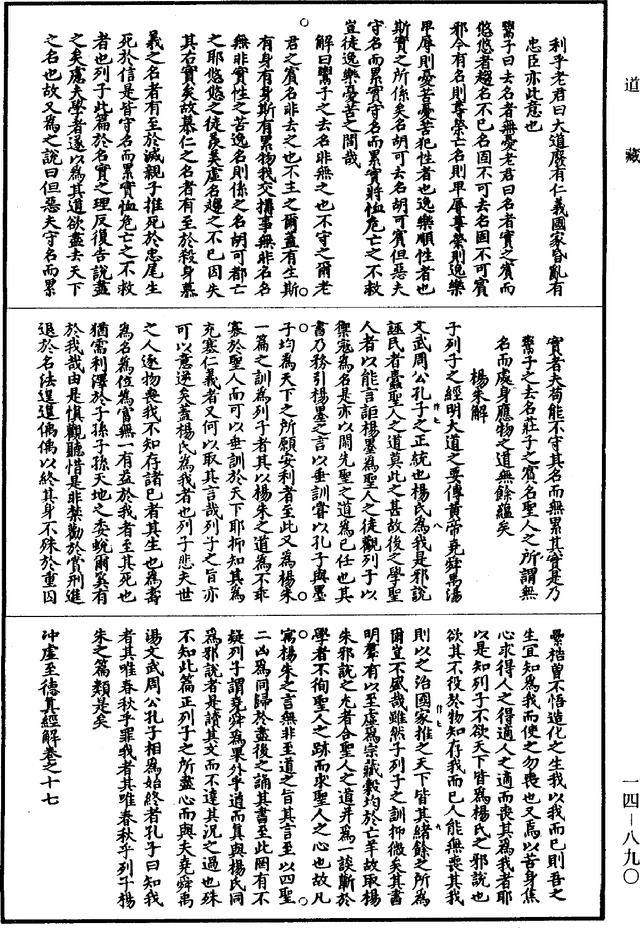 道藏
利乎老君曰大道廢有仁義國家昏亂有
忠臣亦此意也
鬻子曰去名者無憂老君曰名者實之賓而
悠悠者趨名不已名固不可去名固不可賓
邪今有名則尊榮亡名則卑辱尊榮則逸樂
卑辱則憂苦憂苦犯性者也逸樂順性者也
斯實之所係矣名胡可去名胡可賓但惡夫
守名而累實守名而累實將恤危亡之不救
豈徒逸樂憂苦之間哉
解曰鬻子之去名非無之也不守之爾老
君之賓名非去之也不主之爾蓋有生斯
有身有身斯有累物我交搆事無非名名
無非實性之苦逸名則係之名胡可都亡
之耶悠悠之徒羨美虛名趨之不已因失
其右實矣故慕仁之名者有至於殺身慕
義之名者有至於滅親子推死於忠尾生
死於信是皆守名而累實恤危亡之不救
者也列子此篇於名實之理反復告說盡
之矣處夫學者遂以為其道欲盡去天下
之名也故又為之說曰但惡夫守名而累
實者夫苟能不守其名而無累其實是乃
鬻子之去名莊子之賓名聖人之所謂無
名而處身應物之道無餘蘊矣
楊朱解
子列子之經明大道之要傳黃帝堯舜禹湯
文武周公孔子之正統也楊氏為我是邪說
誣民者蠹聖人之道莫此之甚故後之學聖
人者以能言詎楊墨為聖人之徒觀列子以
禦寇為名是亦以閑先聖之道為己任也其
書乃務引楊墨之言以垂訓嘗以孔子與墨
子均為天下之所願安利者至此又為楊朱
一篇之訓為列子者其以楊朱之道為不乖
寡於聖人而可以垂訓於天下耶抑知其為
充塞仁義者又何以取其言哉列子之旨亦
可以意逆矣蓋楊氏為我者也列子悲夫世
之人逐物喪我不知存諸己者其生也為壽
為名為位為富無一有益於我者至其死也
猶需利澤於子孫子孫天地之委蛻爾奚有
於我哉由是慎觀聽惜是非禁勸於賞刑進
退於名法遑遑偊偊以終其身不殊於重囚
纍梏曾不悟造化之生我以我而已則吾之
生宜知為我而使之勿喪也又焉以苦身焦
心求得人之得適人之適而喪其為我者耶
以是知列子不欲天下皆為楊氏之邪說也
欲其不役於物知存我而已人能無喪其我
則以之治國家推之天下皆其緒餘之所為
爾豈不盛哉雖然子列子之訓抑微矣其書
明羣有以至虛為宗臧穀均於亡羊故取楊
朱邪說之尤者合聖人之道并為一談斷於
學者不徇聖人之跡而求聖人之心也故凡
寓楊朱之言無非至道之旨其言至以四聖
二凶為同歸於盡後之誦其書至此罔有不
疑列子謂堯舜為果外乎道而真與楊氏同
為邪說者是讀其文而不達其況之過也殊
不知此篇正列子之所盡心而與夫堯舜禹
湯文武周公孔子相為始終者孔子曰知我
者其唯春秋乎罪我者其唯春秋乎列子楊
朱之篇類是矣
冲虛至德真經解卷之十七
一四－八九〇